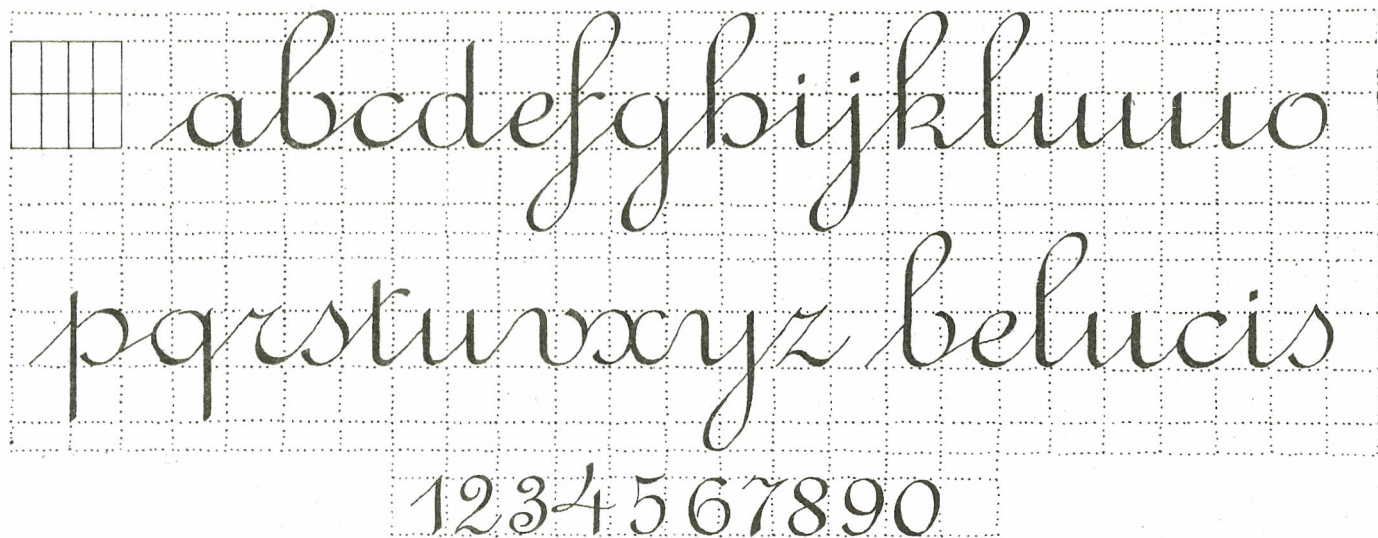 abcdefghijklmno
pqrstuvxyz belucis
1234567890